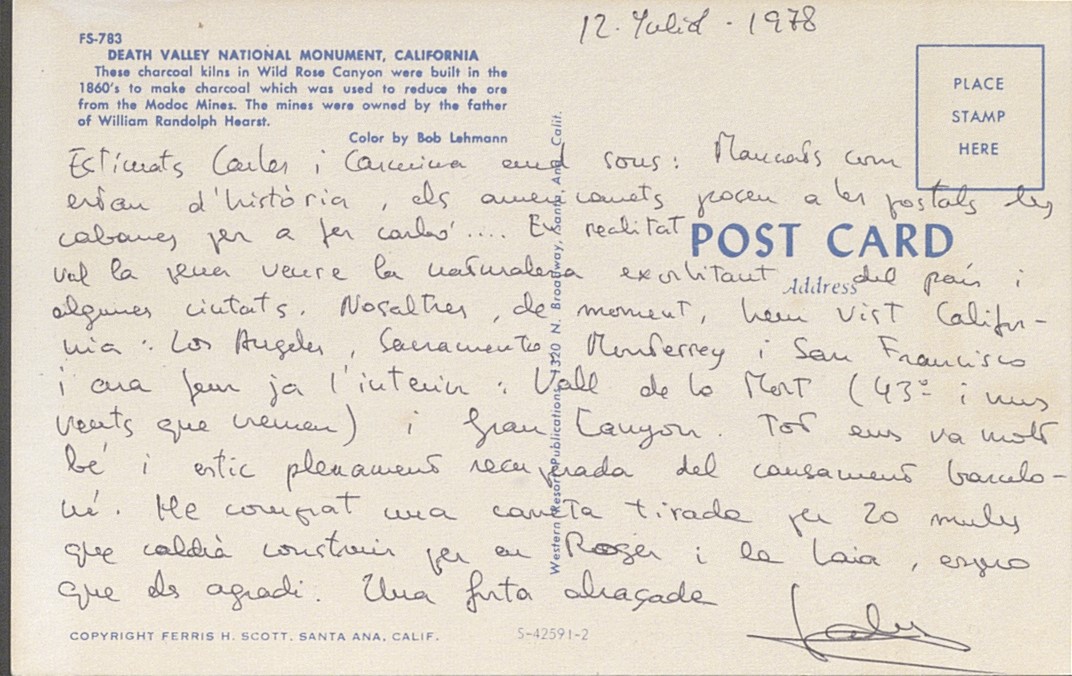 12. Juliol - 1978
FS-783
DEATH VALLEY NATIONAL MONUMENT, CALIFORNIA
These charcoal kilns in Wild Rose Canyon were built in the
1860's to make charcoal which was used to reduce the ore
from the Modoc Mines. The mines were owned by the father
of William Randolph Hearst.
Color by Bob Lehmann
PLACE
STAMP
HERE
Estimats Carles i Carmina amd sons: Mancats com
estan d'història, els americanets posen a les postals les
cabanes per a fer carbó.... En realitat
POST CARD
Address
val la pena veure la naturalesa exorbitant del país i
algunes ciutats. Nosaltres, de moment, hem vist Califor-
nia: Los Angeles, Sacramento Monterrey i San Francisco
i ara fem ja l'interior: Vall de la Mort (43º i uns
vents que cremen) i Gran Canyon. Tot ens va molt
bé i estic plenament recuperada del cansament barcelo-
ní. He comprat una carreta tirada per 20 mules
que caldrà construir per en Roger i la Laia, espero
que els agradi. Una forta abraçada
Western Resort Publications, 1320 N. Broadway, Santa Ana, Calif.
COPYRIGHT FERRIS H. SCOTT. SANTA ANA, CALIF.
S-42591-2